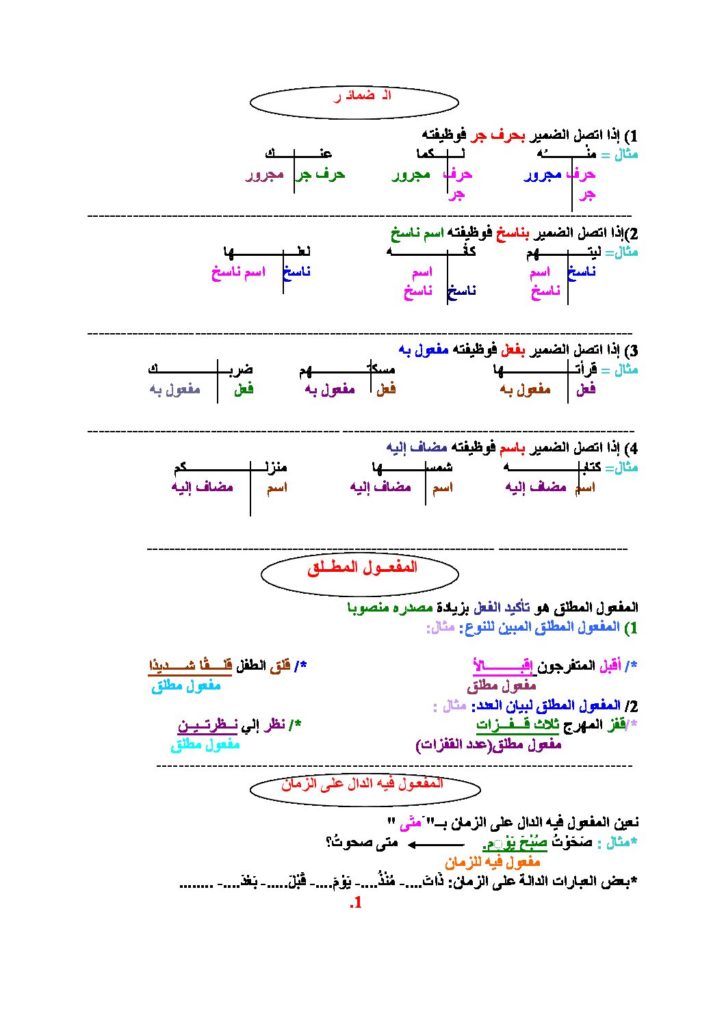 الـ ضمائـ ر
1) إذا اتصل الضمير بحرف جر فوظيفته
مثال = منـــــــــــــه لـــــــــكما عنـــــــــــك
حرف مجرور حرف مجرور حرف جر مجرور
جر جر
2)إذا اتصل الضمير بناسخ فوظيفته اسم ناسخ
مثال= ليتـــــــــــهم كأنـــــــــــه لعلـــــــــــها
ناسخ اسم اسم ناسخ اسم ناسخ
ناسخ ناسخ ناسخ
3) إذا اتصل الضمير بفعل فوظيفته مفعول به
مثال = قرأتـــــــــــها مسكتـــــــــــهم ضربـــــــــــك
فعل مفعول به فعل مفعول به فعل مفعول به
4) إذا اتصل الضمير باسم فوظيفته مضاف إليه
مثال= كتابـــــــــــه شمســـــــــــها منزلـــــــــــكم
اسم مضاف إليه اسم مضاف إليه اسم مضاف إليه
المفعــول المطــلق
المفعول المطلق هو تأكيد الفعل بزيادة مصدره منصوبا
1) المفعول المطلق المبين للنوع: مثال:
*/ أقبل المتفرجون إقبـــــــالاً */ قلق الطفل قلـــقًا شــــديذا
مفعول مطلق مفعول مطلق
2/ المفعول المطلق لبيان العدد: مثال :
*/قفز المهرج ثلاث قــفــزات */ نظر إلي نــظرتــيــن
مفعول مطلق(عدد القفزات) مفعول مطلق
المفعول فيه الدال على الزمان
نعين المفعول فيه الدال على الزمان بــ" َمتَى "
*مثال : صَحَوْتُ صُبْحَ يَوْمٍ. متى صحوتُ؟
مفعول فيه للزمان
*بعض العبارات الدالة على الزمان: ذَاتَ....- مُنْذُ....- يَوْمَ....- قَبْلَ.....- بَعْدَ....- ........
1.